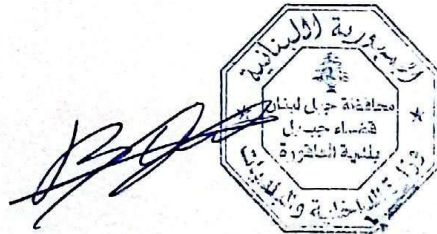 الجمهورية اللبنانية
محافظة جبل لبنان
قضاء جبيل
بلدية العاقورة
وزارة الداخلية والبلديات